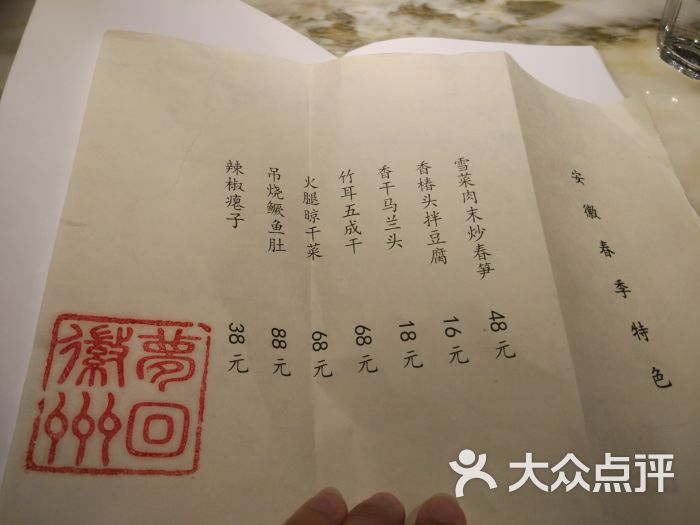 安徽春季特色
雪菜肉末炒春笋 48元
香椿头拌豆腐 16元
香干马兰头 18元
竹耳五成干 68元
火腿晾干菜 68元
吊烧鳜鱼肚 88元
辣椒瘪子 38元
梦回
徽州
大众点评